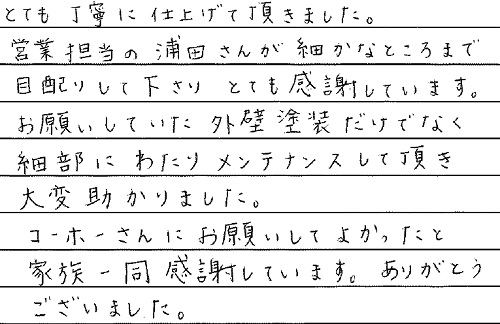 とても丁寧に仕上げて頂きました。
営業担当の浦田さんが細かなところまで
目配りして下さり とても感謝しています。
お願いしていた 外壁塗装だけでなく
細部に わたり メンテナンスして頂き
大変助かりました。
コーホーさんに お願いして よかったと
家族一同 感謝しています。ありがとう
ございました。